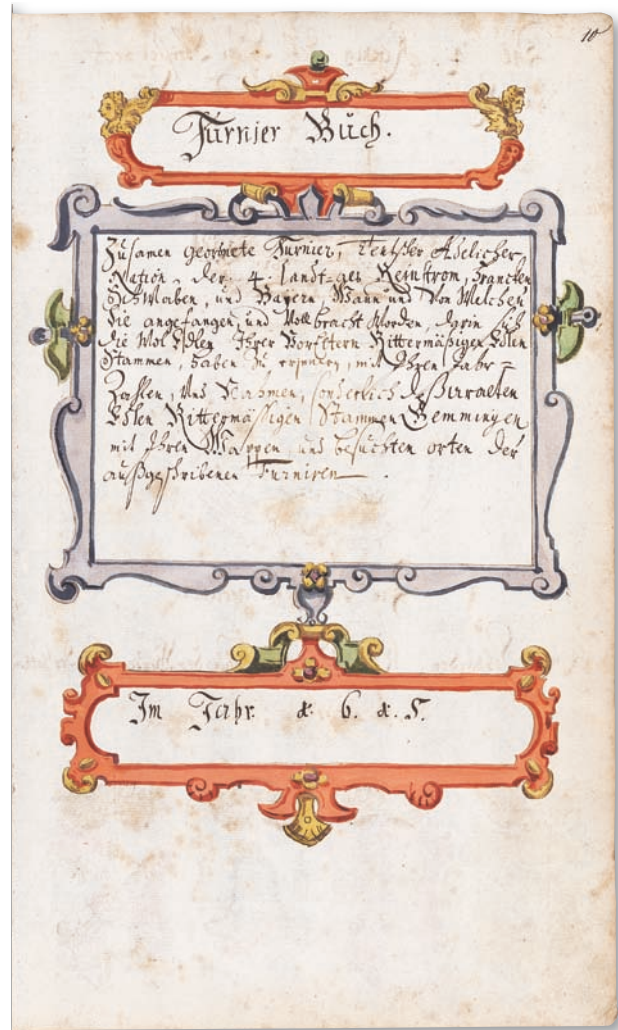 10
Turnier Buch.
Zusamen geordnete Turnier, Teutscher Adelicher
Nation, der 4 Landt=
Reinstrom, Francken
Schwaben, und Bayern, Wann und Von Welchen
Sie angefangen, und Vollbracht Worden, darin sich
die Wol Edlen Ihrer Vorelttern Rittermäßigen Edlen
Stammen, haben zu erinnern, mit Ihren Jahr=
Zahlen, Und Nahmen, sonderlich deß Uraltten
Edlen Rittermäßigen Stammen Gemmingen
mit Ihren Wappen und besuchten orten der
außgeschribenen Turniren.
Im Jahr. & 6. & 5.